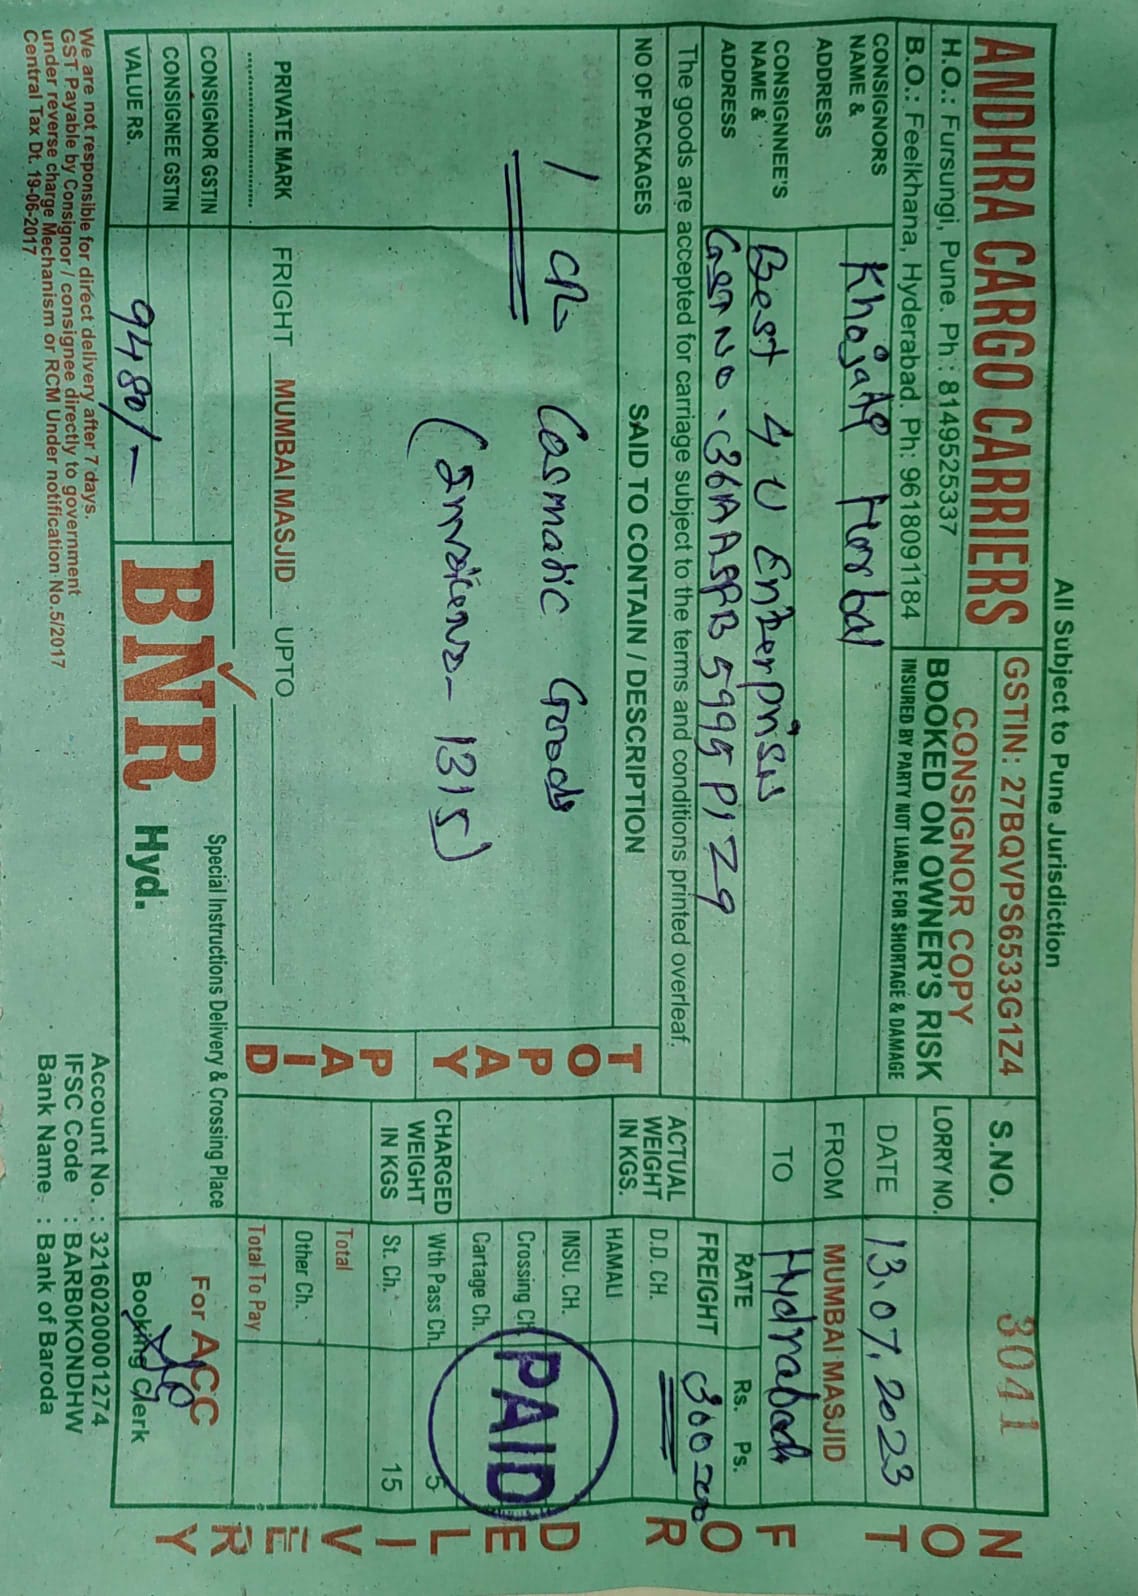 All Subject to Pune Jurisdiction
ANDHRA CARGO CARRIERS
H.O.: Fursungi, Pune. Ph : 8149525337
B.O.: Feelkhana, Hyderabad. Ph: 9618091184
GSTIN: 27BQVPS6533G1Z4
CONSIGNOR COPY
BOOKED ON OWNER'S RISK
INSURED BY PARTY NOT LIABLE FOR SHORTAGE & DAMAGE
S.NO. 3041
LORRY NO.
DATE 13.07.2023
FROM MUMBAI-MASJID
TO Hydrabad
CONSIGNORS
NAME &
ADDRESS
Khojate Horbal
CONSIGNEE'S
NAME &
ADDRESS
Best 4 U Enterprises
GST NO. 36AAAPB5995P1Z9
The goods are accepted for carriage subject to the terms and conditions printed overleaf.
NO OF PACKAGES
SAID TO CONTAIN / DESCRIPTION
1 Cosmatic Goods
(Invoice no- 1315)
TO PAY
PAID
ACTUAL
WEIGHT
IN KGS.
CHARGED
WEIGHT
IN KGS
RATE Rs. Ps.
FREIGHT 300
D.D. CH.
HAMALI
INSU. CH.
Crossing Ch.
Cartage Ch.
Wth Pass Ch. 5
St. Ch. 15
Total
Other Ch.
Total To Pay
PAID
PRIVATE MARK
FRIGHT MUMBAI MASJID UPTO
CONSIGNOR GSTIN
CONSIGNEE GSTIN
VALUE RS. 9480/-
BNR Hyd.
Special Instructions Delivery & Crossing Place
For ACC
Booking Clerk
We are not responsible for direct delivery after 7 days.
GST Payable by Consignor / consignee directly to government
under reverse charge Mechanism or RCM Under notification No.5/2017
Central Tax Dt. 19-06-2017
Account No. : 32160200001274
IFSC Code : BARB0KONDHW
Bank Name : Bank of Baroda
NOT FOR DELIVERY